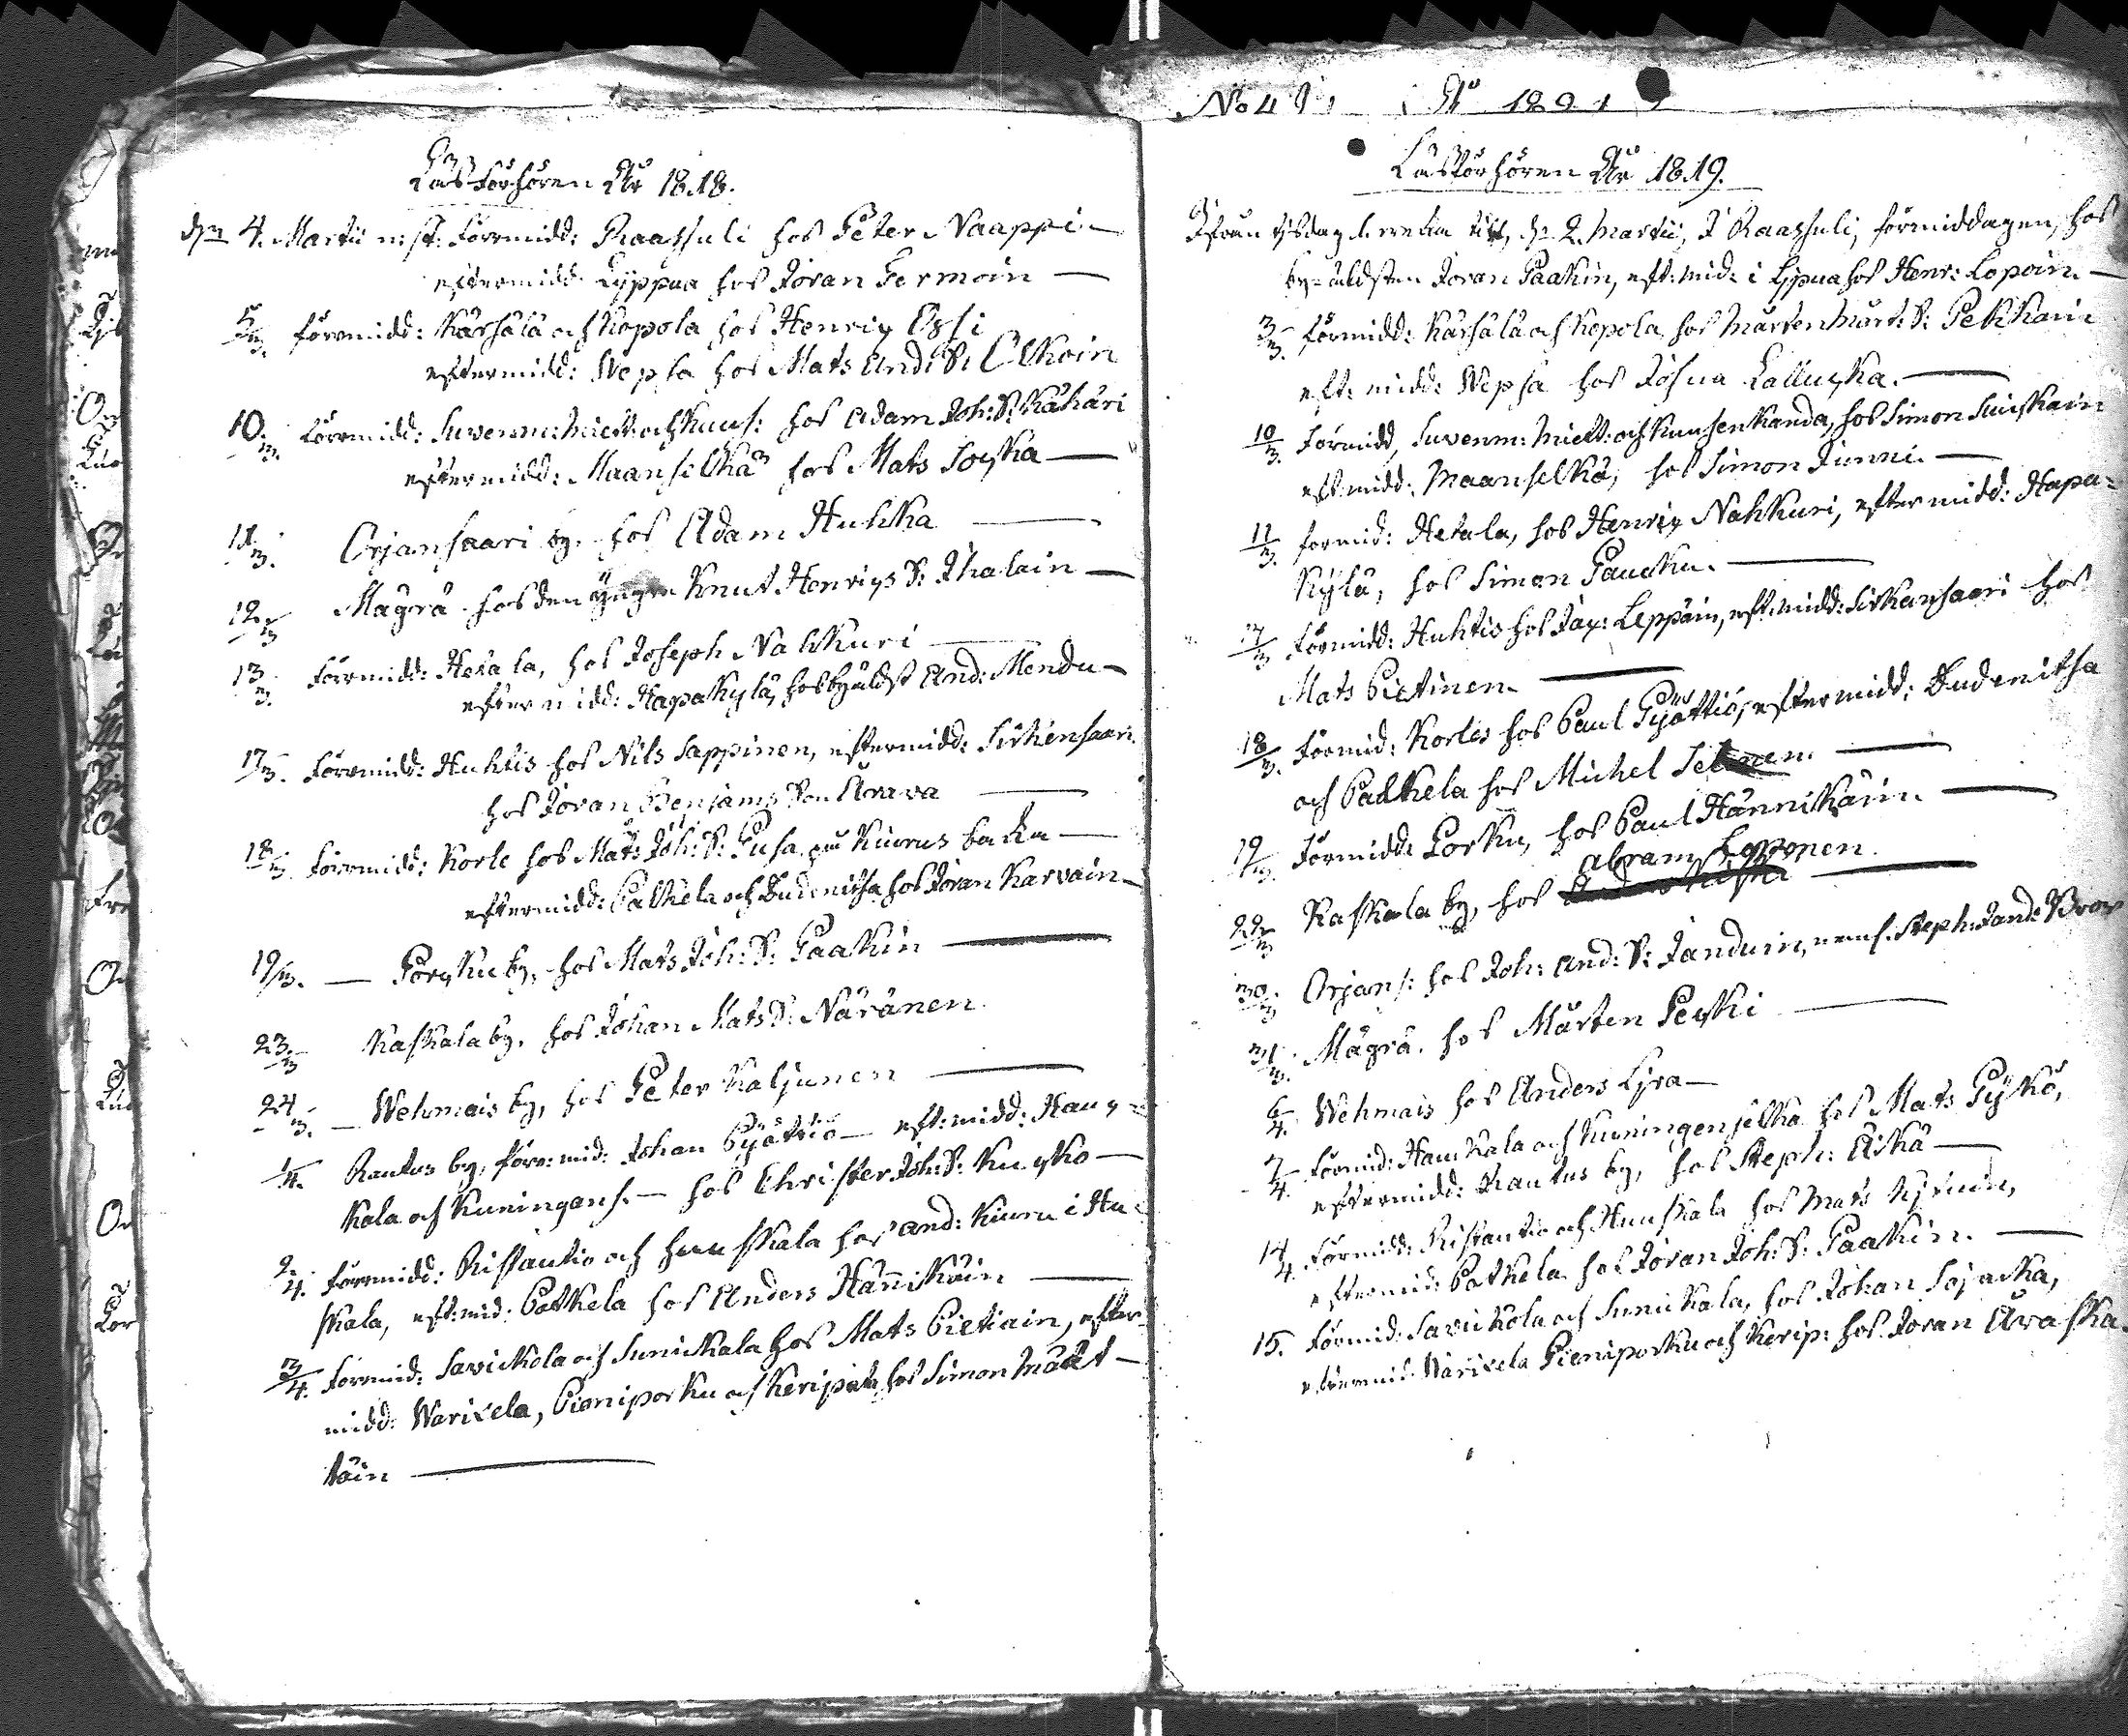 Läsförhören År 1818.
d: 4. Martii n: st: Förrmidd: Raassuli hos Peter Naappi —
eftermidd: Lyppua hos Jöran Termoin —
5/3. förrmidd: Kärsälä och Kopola hos Henric Ossi
eftermidd: Wepsa hos Mats And: S: Olkoin
10/3. Förrmidd: Suvenm: Miett: och Kuus: hos Adam Joh: S: Kähäri
eftermidd: Maanselkä hos Mats Soyka —
11/3. Orjansaari by. hos Adam Huhka —
12/3 Mägrä hos den yngre Knut Henrics S: Ihalain —
13/3. Förrmidd: Hetala, hos Joseph Nahkuri —
eftermidd: Hapakylä, hos byäldst And: Mendu —
17/3. Förrmidd: Huhtis hos Nils Sappinen, eftermidd: Sirkensaari
hos Jöran Benjams Son Ärava —
18/3 Förrmidd: Korle hos Mats Joh: S: Pusa på Kiurus backa —
eftermidd: Patkela och Dudenitsa hos Jöran Karvain —
19/3. — Porcku by, hos Mats Joh: S: Paakin —
23/3 Kaskala by. hos Johan Mats S: Näränen
24/3. — Wehmais by, hos Peter Kaljunen —
1/4. Rautus by, förr:mid: Johan Pyöttiö — eft:midd: Hauc=
kala och Kuningans. — hos Christer Joh: S: Kucko —
2/4. Förrmidd: Ristautio och Huuskala hos And: Kiuru i Hu=
skala, eft:mid: Patkela hos Anders Hännikäin —
3/4. Förrmid: Savickola och Sunickala hos Mats Pietiain, efter=
midd: Warixela, Pieniporku och Keripata hos Simon Mätt=
täin —
No 4 År 1821
Läsförhören År 1819.
Ifrån tisdag d. 2. Martii, I Raassuli, förmiddagen, hos
by-äldsten Jöran Paakin, eft:mid: i Lypua hos Henr: Lopoin. —
3/3. Förmidd: Kärsälä och Kopola, hos Mårten Mårt: S: Pekkain
eft: midd: Wepsa hos Josua Lalluka. —
10/3. Förmidd, Suvenm: Miett: och Kuusenkanda, hos Simon Suikkain
eft:midd: Maanselkä, hos Simon Junni. —
11/3 formid: Hetala, hos Henric Nahkuri, eftermidd: Hapa=
kylä, hos Simon Paucku. —
17/3 Förmidd: Huhtis hos Jac: Leppäin, eft:midd: Sirkansaari hos
Mats Pietinen —
18/3. Förmid: Korles hos Paul Pyöttiö, eftermidd: Dudenitsa
och Patkela hos Michel —
19/3. Förmidd: Porku, hos Paul Hännikäin. —
Abram Lopponen
22/3 Kaskala by, hos —
30/3 Orjans: hos Joh: And: S: Janduin, Steph: Jand:
31/3. Mägrä. hos Mårten Pecki —
6/4. Wehmais hos Anders Lyra —
7/4. Förmid: Hauckala och Kuningenselkä hos Mats Pykö,
eftermidd: Rautus by, hos Steph: Äikä —
14/4. Förmidd: Ristautio och Huuskala hos Mats
eftermid: Patkela hos Jöran Joh: S: Paakin. —
15. Förmid: Savickola och Sunickala, hos Johan Sojacka,
eftermid: Warixela Pieniporku och Kerip: hos Jöran Äraska.